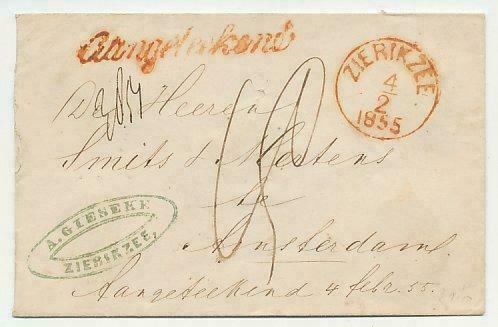 Aangeteekend
ZIERIKZEE
4
2
1855
De Heeren
Smits & Mertens
te
Amsterdam.
A. GIESEKE
ZIERIKZEE,
Aangeteekend 4 febr. 55.